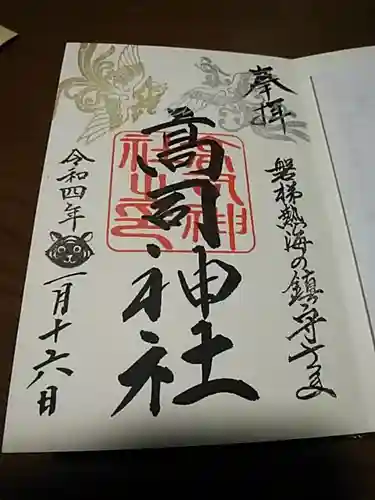 奉拝
磐梯熱海の鎮守さま
高司神社
令和四年
一月十六日